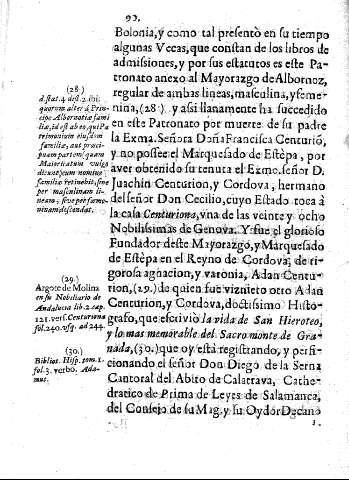 92.
Bolonia, y como tal presentò en su tiempo
algunas Vecas, que constan de los libros de
admissiones, y por sus estatutos es este Pa-
tronato anexo al Mayorazgo de Albornoz,
regular de ambas lineas, masculina, y feme-
nina, (28) y asi llanamente ha succedido
en este Patronato por muerte de su padre
la Exma. Señora Doña Francisca Centuriõ,
y no posee el Marquesado de Estèpa, por
aver obtenido su tenuta el Exmo. señor D.
Juachin Centurion, y Cordova, hermano
del señor Don Cecilio, cuyo Estado toca à
la casa Centuriona, vna de las veinte y ocho
Nobilissimas de Genova. Y fue el glorioso
Fundador deste Mayorazgo, y Marquesado
de Estèpa en el Reyno de Cordova, de ri-
gorosa agnacion, y varonia, Adan Centu-
rion, (29.) de quien fue viznieto otro Adan
Centurion, y Cordova, doctissimo Histo-
grafo, que escriviò la vida de San Hieroteo,
y lo mas memorable del Sacro monte de Gra-
nada, (30.) que oy està registrando, y perfi-
cionando el señor Don Diego de la Serna
Cantoral del Abito de Calatrava, Cathe-
dratico de Prima de Leyes de Salamanca,
del Consejo de su Mag. y su Oydor Decano
(28)
d. stat. 4. dest. 2. ibi:
quorum alter à Prin-
cipe Albornotiæ fami-
liæ, id est ab eo, qui Pa-
trimonium eiusdem
familiæ, aut præci-
puam partem, quam
Maioratum vulgo
dicunt, cum nomine
familiæ retinebit, sive
per masculinam li-
neam, sive per fœmi-
ninam descendat.
(29.)
Argote de Molina
en su Nobiliario de
Andalucia lib. 2. cap.
121. vers. Centuriona
fol. 240. vsq. ad 244.
(30.)
Biblios. Hisp. tom. 1.
fol. 3. verbo. Ada-
mus.